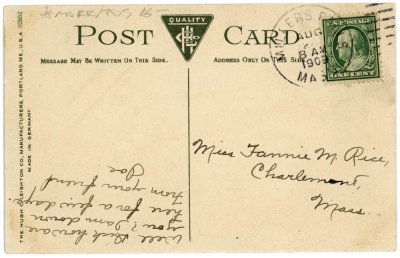 POST CARD
QUALITY
MESSAGE MAY BE WRITTEN ON THIS SIDE.
ADDRESS ONLY ON THIS SIDE.
MILLERS
AUG
AM
1909
ONE CENT
Miss Fannie M. Rice,
Charlemont,
Mass.
Well Buck how are
you? I am down
here for a few days.
From your friend
Joe
THE HUGH C. LEIGHTON CO., MANUFACTURERS, PORTLAND, ME., U.S.A.
MADE IN GERMANY